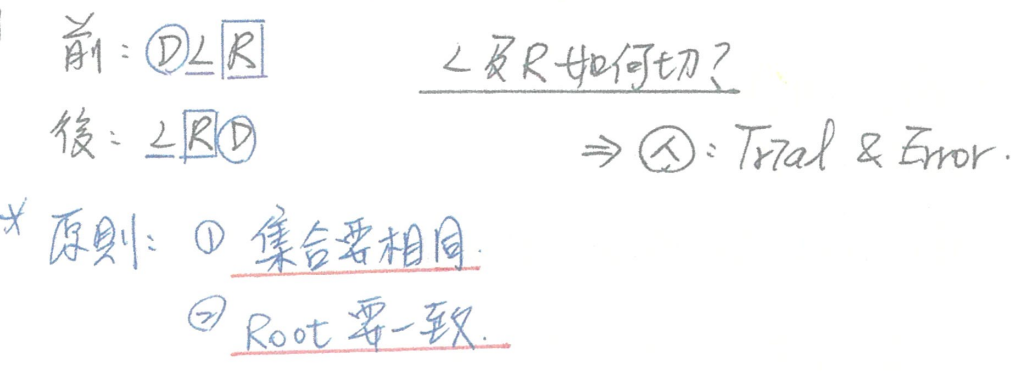 前：D L R
L及R如何切？
後：L R D
⇒ 人：Trial & Error.
* 原則：① 集合要相同.
② Root 要一致.